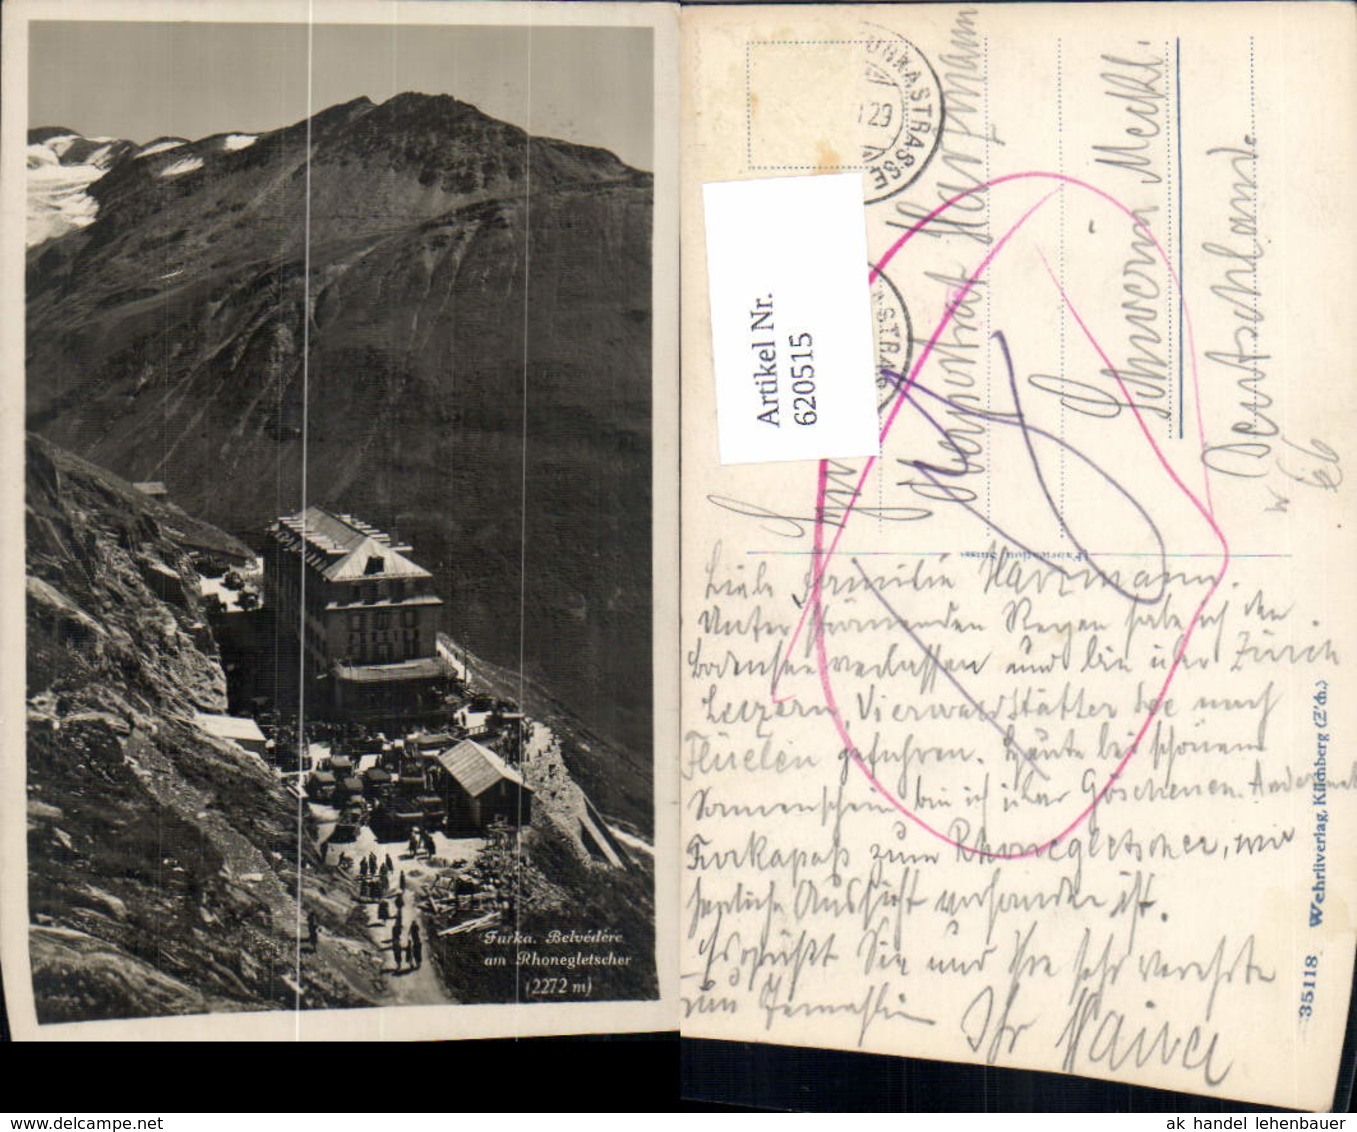 Furka. Belvédère
am Rhonegletscher
(2272 m)
FURKASTRASSE
29
Artikel Nr.
620515
Oberpostrat Harzmann
Schwerin Meckl.
Deutschland.
Liebe Familie Harzmann.
Unter strömenden Regen habe ich den
Bodensee verlassen und bin über Zürich
Luzern, Vierwaldstätter See nach
Flüelen gefahren. Heute bei schönem
Sonnenschein bin ich über Göschenen Andermat
Furkapaß zum Rhonegletscher, wo
herrliche Aussicht vorhanden ist.
Es grüßt Sie und Ihre sehr verehrte
Frau Gemahlin
Ihr
35118 Wehrliverlag, Kilchberg (Z'ch.)
ak handel lehenbauer